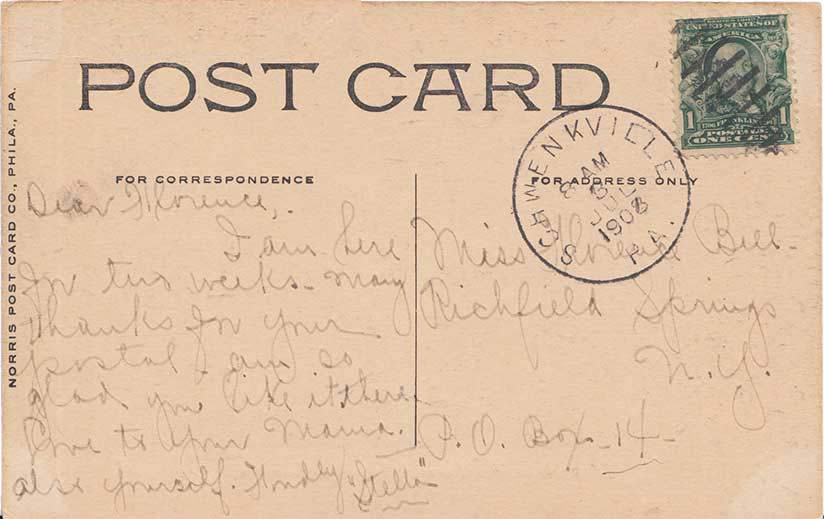 POST CARD
UNITED STATES OF
AMERICA
1 1
POSTAGE
ONE CENT
SCHWENKVILLE
8 AM
JUL
1908
PA.
FOR CORRESPONDENCE
FOR ADDRESS ONLY
Dear Florence,
I am here
for two weeks - many
thanks for your
postal - am so
glad you like it there -
Love to your Mama.
also yourself. Fondly "Stella"
Miss Florence Bell -
Richfield Springs
N.Y.
P.O. Box - 14 -
NORRIS POST CARD CO., PHILA., PA.